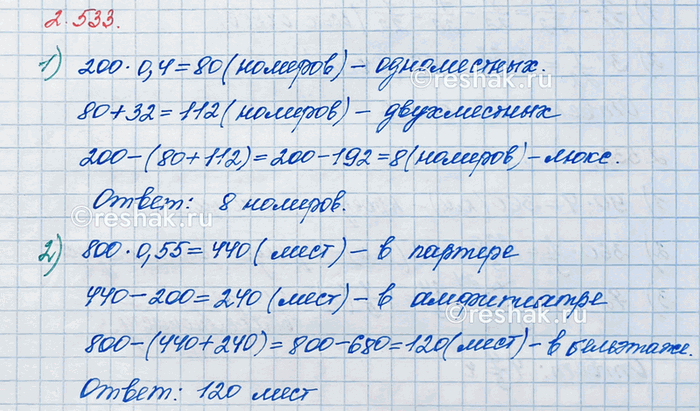 2.533.
1) 200 · 0,4 = 80 (номеров) – одноместных.
80 + 32 = 112 (номеров) – двухместных
200 – (80 + 112) = 200 – 192 = 8 (номеров) – люкс.
Ответ: 8 номеров.
©reshak.ru
©reshak.ru
2) 800 · 0,55 = 440 (мест) – в партере
440 – 200 = 240 (мест) – в амфитеатре
800 – (440 + 240) = 800 – 680 = 120 (мест) – в бельэтаже.
©reshak.ru
©reshak.ru
Ответ: 120 мест